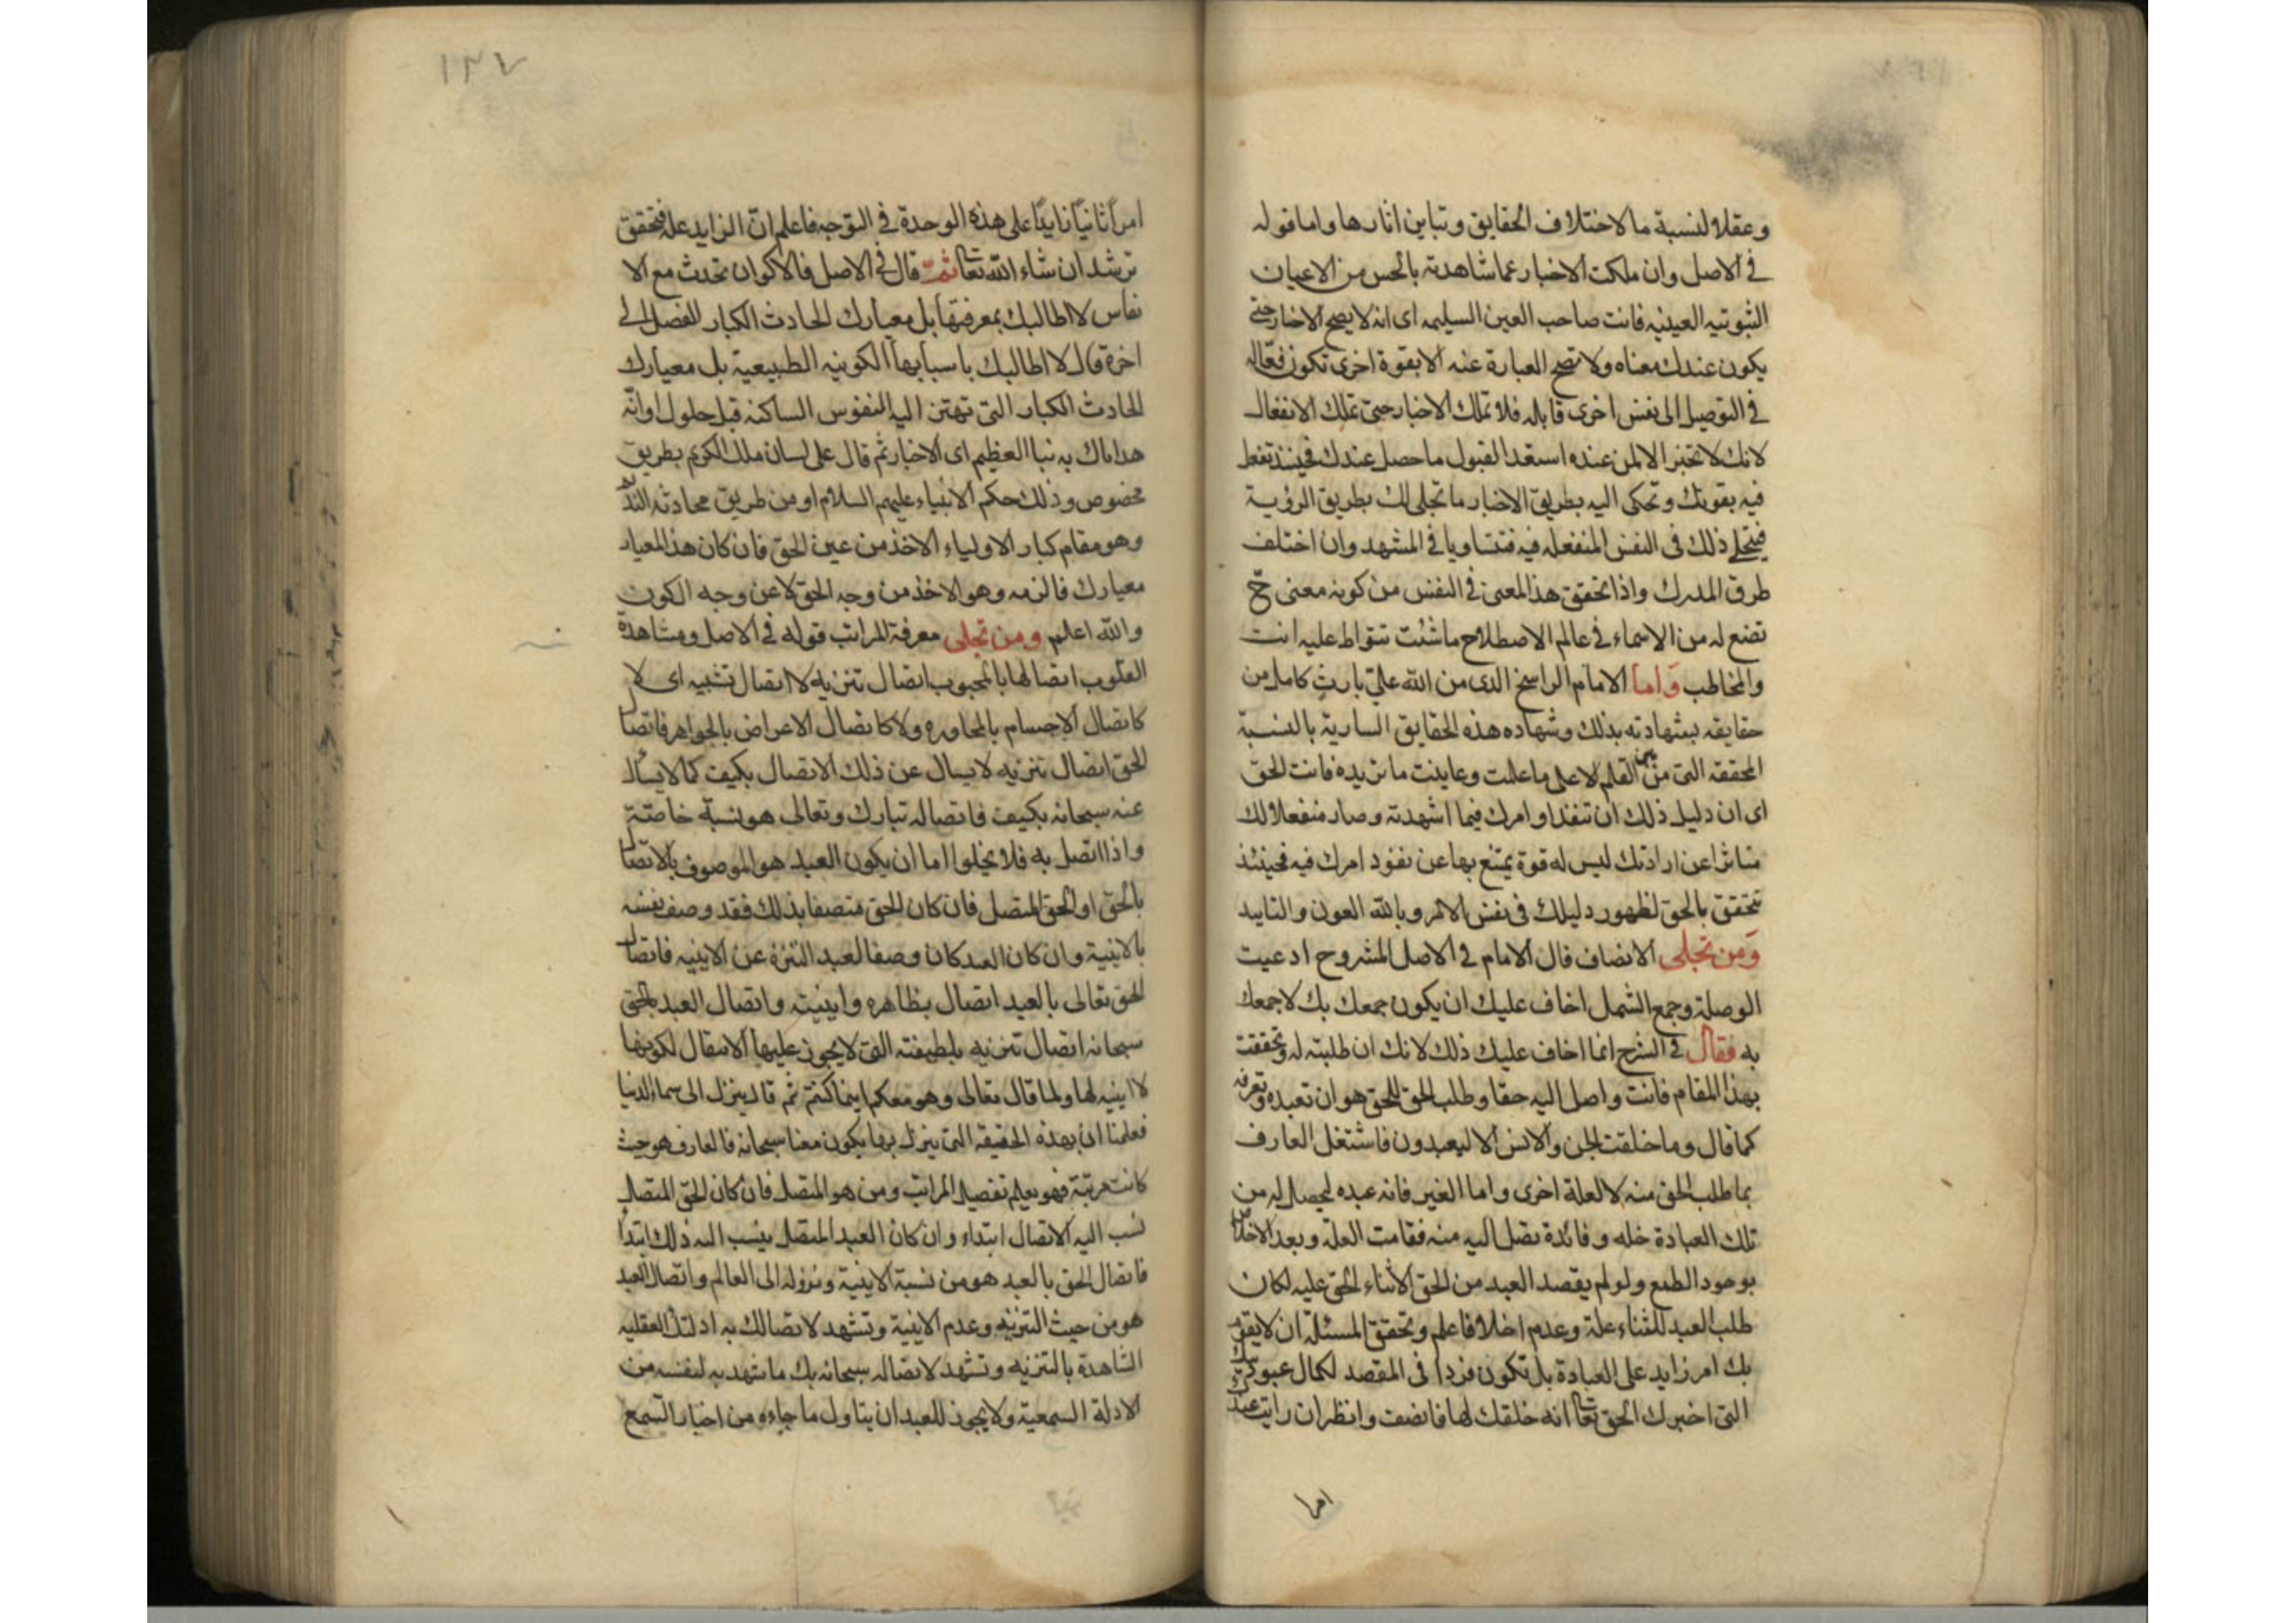 وعقلا لنسبة ما لاختلاف الحقايق وتباين اثارها واما قوله
في الاصل وان ملكت الاخبار عما شاهدته بالحس من الاعيان
الثبوتيه العينيه فانت صاحب العين السليمه اى انه لا يصح الاخبار حتى
يكون عندك معناه ولا تصح العبارة عنه الا بقوة اخرى تكون فعاله
في التوصيل الى نفس اخرى قابله فلا تملك الاخبار حتى تملك الانفعال
لانك لا تخبر الا لمن عنده استعد القبول ما حصل عندك فحينئذ تفعل
فيه بقوتك وتحكى اليه بطريق الاخبار ما تجلى لك بطريق الرؤية
فيتجلى ذلك فى النفس المنفعله فيه فتتساويا في المشهد وان اختلف
طرق المدرك واذا تحقق هذا المعنى في النفس من كونه معنى ح
تضع له من الاسماء في عالم الاصطلاح ما شئت تتواطا عليه انت
والمخاطب وَاما الامام الراسخ الذى من الله علىّ بارثٍ كامل من
حقايقه بشهادته بذلك وشهاده هذه الحقايق السارية بالنسبة
المحققه التى من بين القلم الاعلى ما علمت وعاينت ما نريده فانت الحق
اى ان دليل ذلك ان تنفذ اوامرك فيما اشهدته وصار منفعلا لك
متاثرا عن ارادتك ليس له قوة يمتنع بها عن نفوذ امرك فيه فحينئذ
تتحقق بالحق لظهور دليلك فى نفس الامر وبالله العون والتاييد
وَمن تجلى الانصاف قال الامام في الاصل المشروح ادعيت
الوصلة وجمع الشمل اخاف عليك ان يكون جمعك بك لا جمعك
به فقال في الشرح انما اخاف عليك ذلك لانك ان طلبته له وتحققت
بهذا المقام فانت واصل اليه حقا وطلب الحق للحق هو ان تعبده وتعرفه
كما قال وما خلقت الجن والانس الا ليعبدون فاشتغل العارف
بما طلب الحق منه لا لعلة اخرى واما الغير فانه عبده ليحصل له من
تلك العبادة خله وفائدة تصل اليه منه فقامت العلة وبعد الاخلاص
بوجود الطمع ولو لم يقصد العبد من الحق الا ثناء الحق عليه لكان
طلب العبد للثناء علة وعدم اخلاف اعلم وتحقق المسئلة ان لا يقوم
بك امر زايد على العبادة بل تكون فردا فى المقصد لكمال عبوديتك
التى اخبرك الحق تعا انه خلقك لها فانصف وانظر ان رايت عندك
امرا
١٣٧
امراً ثانياً زايداً على هذه الوحدة في التوجه فاعلم انّ الزايد علة فتحقق
ترشد ان شاء الله تعا ثمّ قال في الاصل فالاكوان تحدث مع الا
نفاس لا اطالبك بمعرفتها بل معيارك الحادث الكبار الفصل الى
اخرة قال لا اطالبك باسبابها الكونيه الطبيعية بل معيارك
الحادث الكبار التى تهتز اليه النفوس الساكنه قبل حلول اوانّه
هدا ماك به نبا العظيم اى الاخبار ثم قال على لسان ملك الكريم بطريق
مخصوص وذلك حكم الانبياء عليهم السلام او من طريق محادثه
وهو مقام كبار الاولياء الاخذ من عين الحق فان كان هذا المعيار
معيارك فالزمه وهو الاخذ من وجه الحق لا عن وجه الكون
والله اعلم ومن تجلى معرفة المراتب قوله في الاصل ومشاهدة
القلوب اتصالها بالمحبوب اتصال تنزيه لا اتصال تشبيه اى لا
كاتصال الاجسام بالمجاوره ولا كاتصال الاعراض بالجواهر فاتصال
الحق اتصال تنزيه لا يسال عن ذلك الاتصال بكيف كما لا يسأل
عنه سبحانه بكيف فاتصاله تبارك وتعالى هو نسبة خاصّة
واذا اتصل به فلا يخلوا اما ان يكون العبد هو الموصوف بالاتصال
بالحق او الحق المتصل فان كان الحق متصفا بذلك فقد وصف نفسه
بالاينية وان كان العبد كان وصفا لعبد التنزه عن الاينيه فاتصال
الحق تعالى بالعبد اتصال بظاهره واينيته واتصال العبد بالحق
سبحانه اتصال تنزيه بلطيفته التى لا يجوز عليها الانتقال لكونها
لا اينيه لها ولما قال تعالى وهو معكم اينما كنتم ثم قال ينزل الى سماء الدنيا
فعلمنا ان بهذه الحقيقه التى ينزل بها يكون معنا سبحانه فالعارف هو حيث
كانت مرتبة فهو يعلم تفصيل المراتب ومن هو المتصل فان كان الحق المتصل
نسب اليه الاتصال ابتداء وان كان العبد المتصل ينسب اليه ذلك ابتداً
فاتصال الحق بالعبد هو من نسبة الاينية ونزوله الى العالم واتصال العبد
هو من حيث التنزيه وعدم الاينية وتشهد لاتصالك به ادلتك العقليه
الشاهدة بالتنزيه وتشهد لاتصاله سبحانه بك ما شهد به لنفسه من
الادلة السمعية ولا يجوز للعبد ان يتاول ما جاءه من اخبار السمع